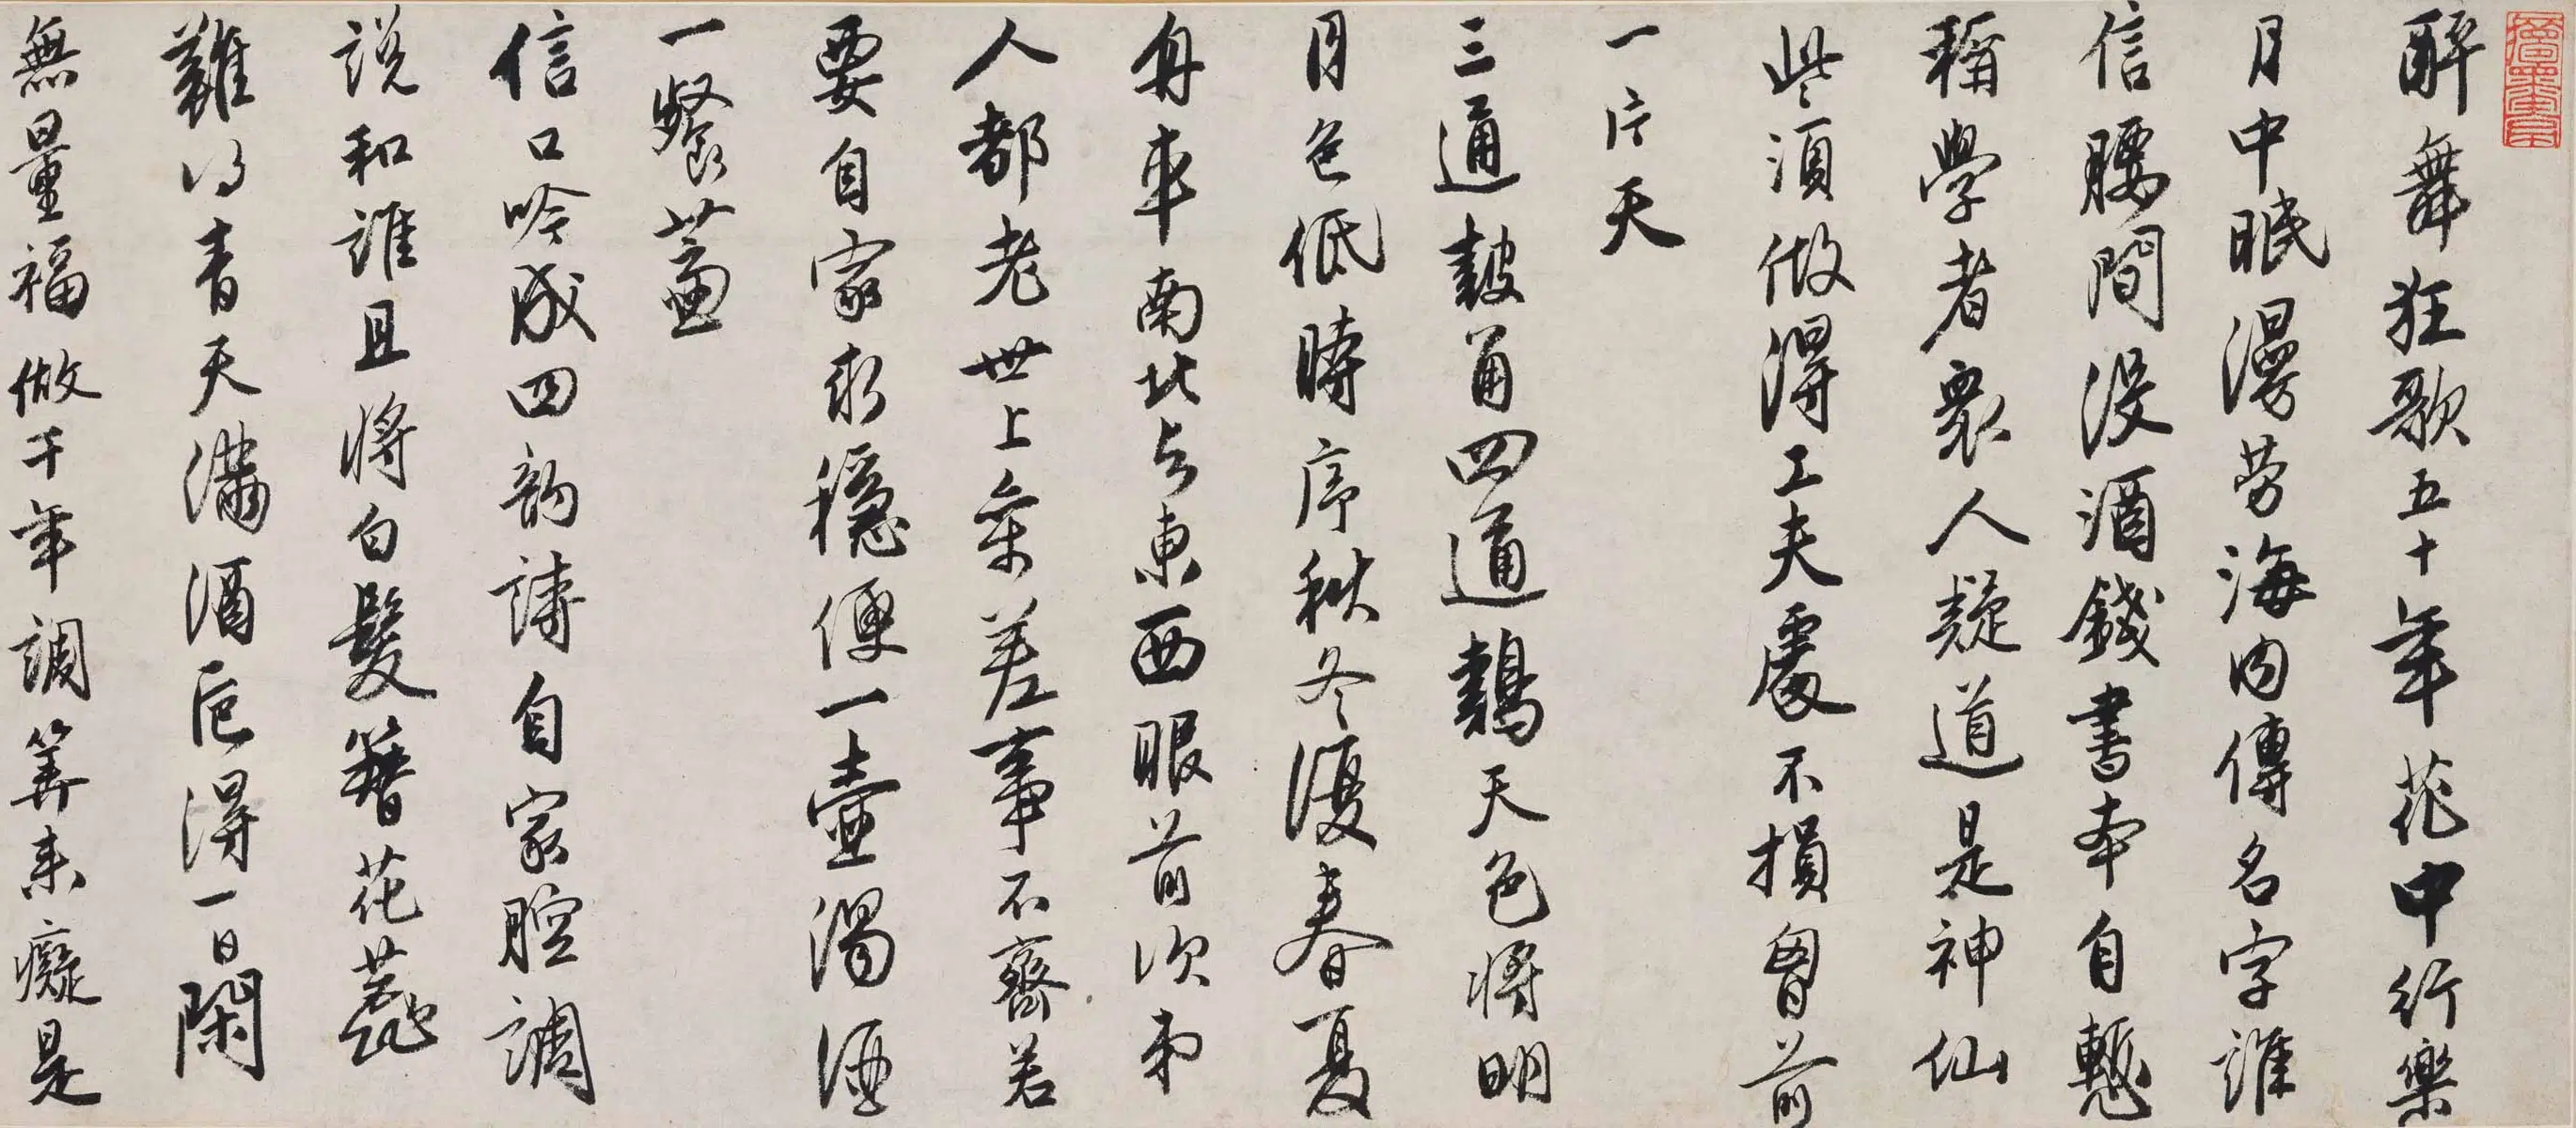 醉舞狂歌五十年花中行樂
月中眠漫勞海内傳名字誰
信腰間沒酒錢書本自慙
稱學者衆人疑道是神仙
些須做得工夫處不損胷前
一片天
三通鼓角四通鷄天色將明
月色低時序秋冬復春夏
舟車南北与東西眼前次第
人都老世上參差事不齊若
要自家求穩便一壺濁酒
一餐虀
信口吟成四韵詩自家腔調
說和誰且將白髮簪花蕊
難得青天滿酒卮得一日閑
無量福做千年調筭来癡是